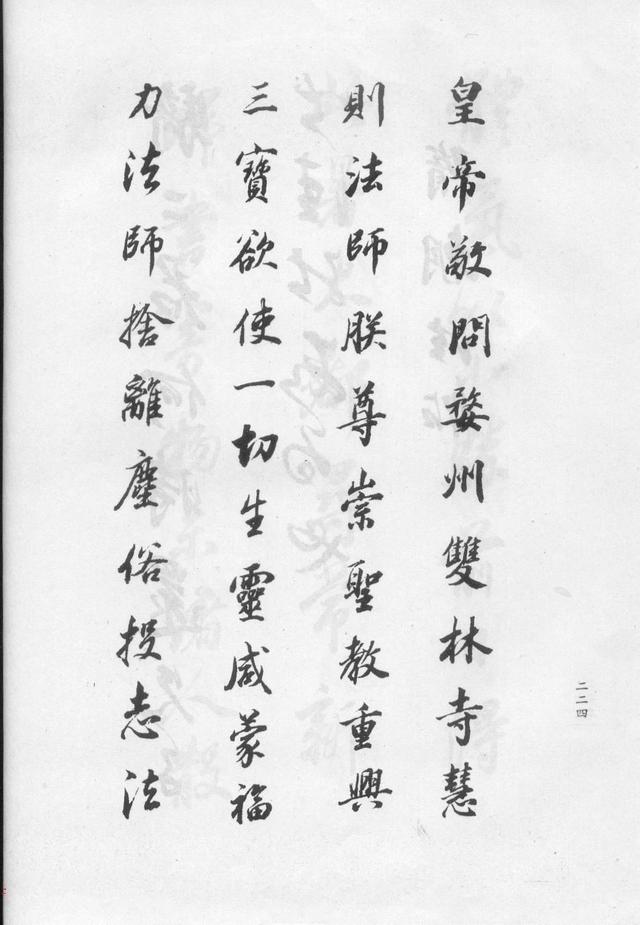 皇帝敬問婺州雙林寺慧
則法師朕尊崇聖教重興
三寶欲使一切生靈咸蒙福
力法師捨離塵俗投志法
二二四